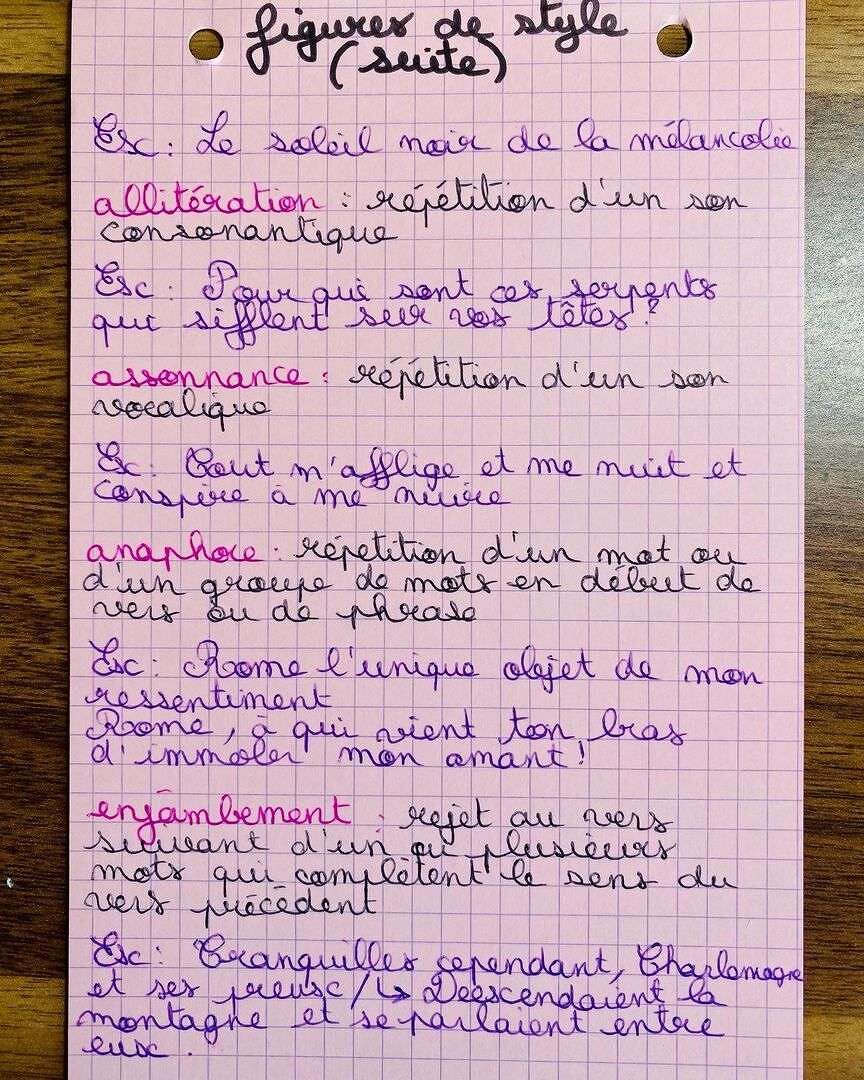 figures de style
(suite)
Ex : Le soleil noir de la mélancolie
allitération : répétition d'un son
consonantique
Ex : Pour qui sont ces serpents
qui sifflent sur vos têtes ?
assonnance : répétition d'un son
vocalique
Ex : Tout m'afflige et me nuit et
conspire à me nuire
anaphore : répétition d'un mot ou
d'un groupe de mots en début de
vers ou de phrase
Ex : Rome l'unique objet de mon
ressentiment
Rome, à qui vient ton bras
d'immoler mon amant !
enjambement : rejet au vers
suivant d'un ou plusieurs
mots qui complètent le sens du
vers précédent
Ex : Tranquilles cependant, Charlemagne
et ses preux / ↳ Descendaient la
montagne et se parlaient entre
eux.